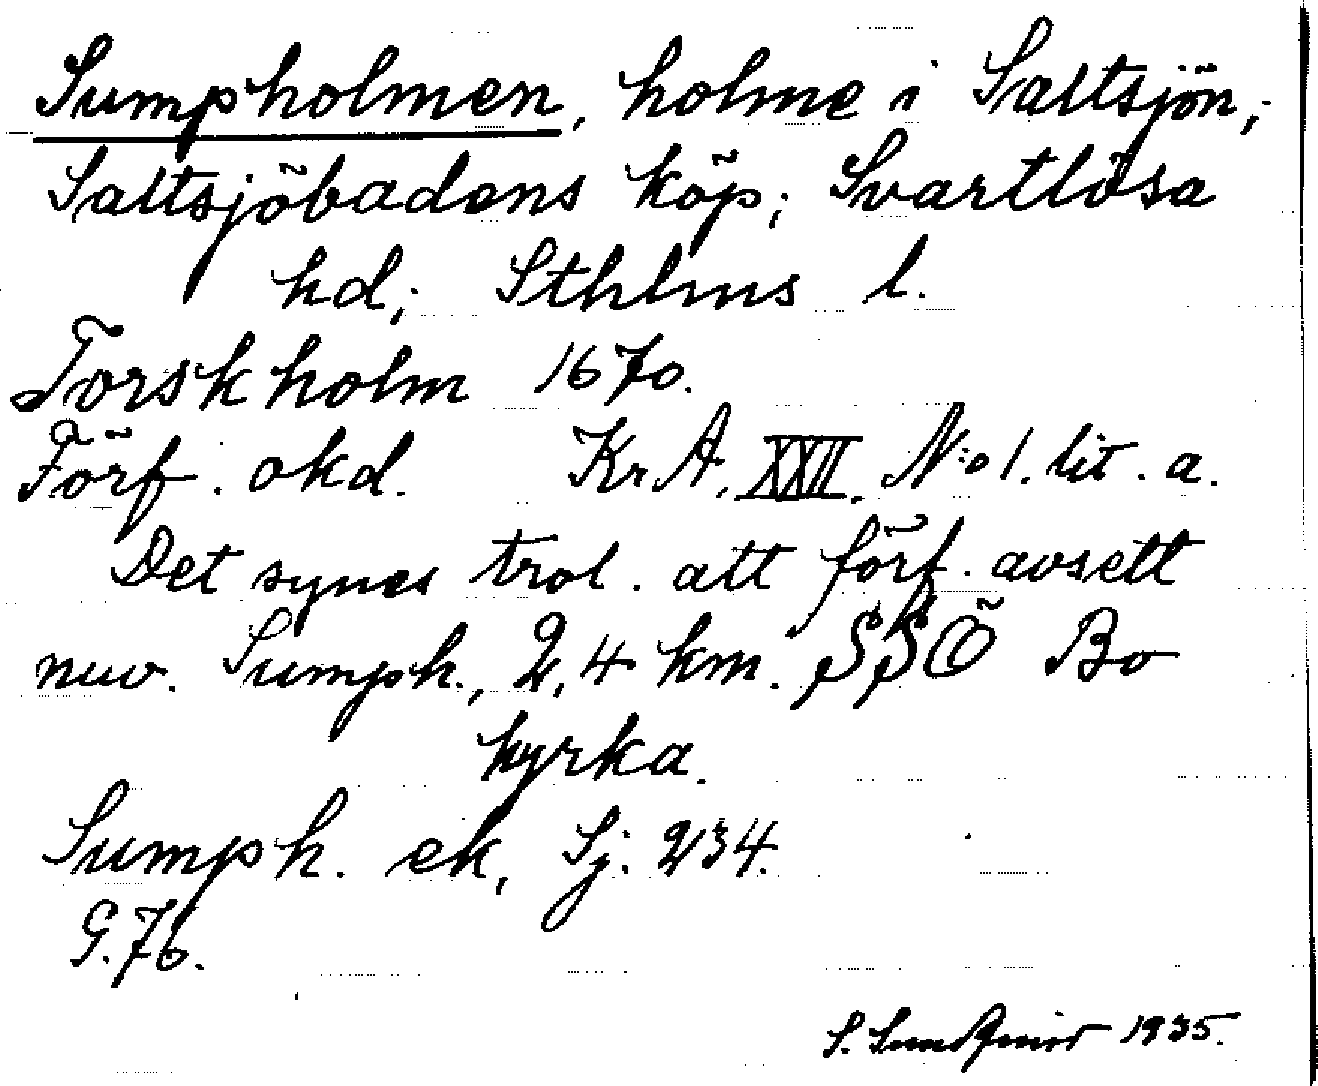 Sumpholmen, holme i Saltsjön,
Saltsjöbadens köp; Svartlösa
hd; Sthlms l.
Torskholm 1670.
Förf. okd. Kr A. XXII. N:o 1. lit. a.
Det synes trol. att förf. avsett
nuv. Sumph., 2,4 km. SSÖ Bo
kyrka.
Sumph. ek, Sj. 234.
G. 76.
S. Sundqvist 1935.